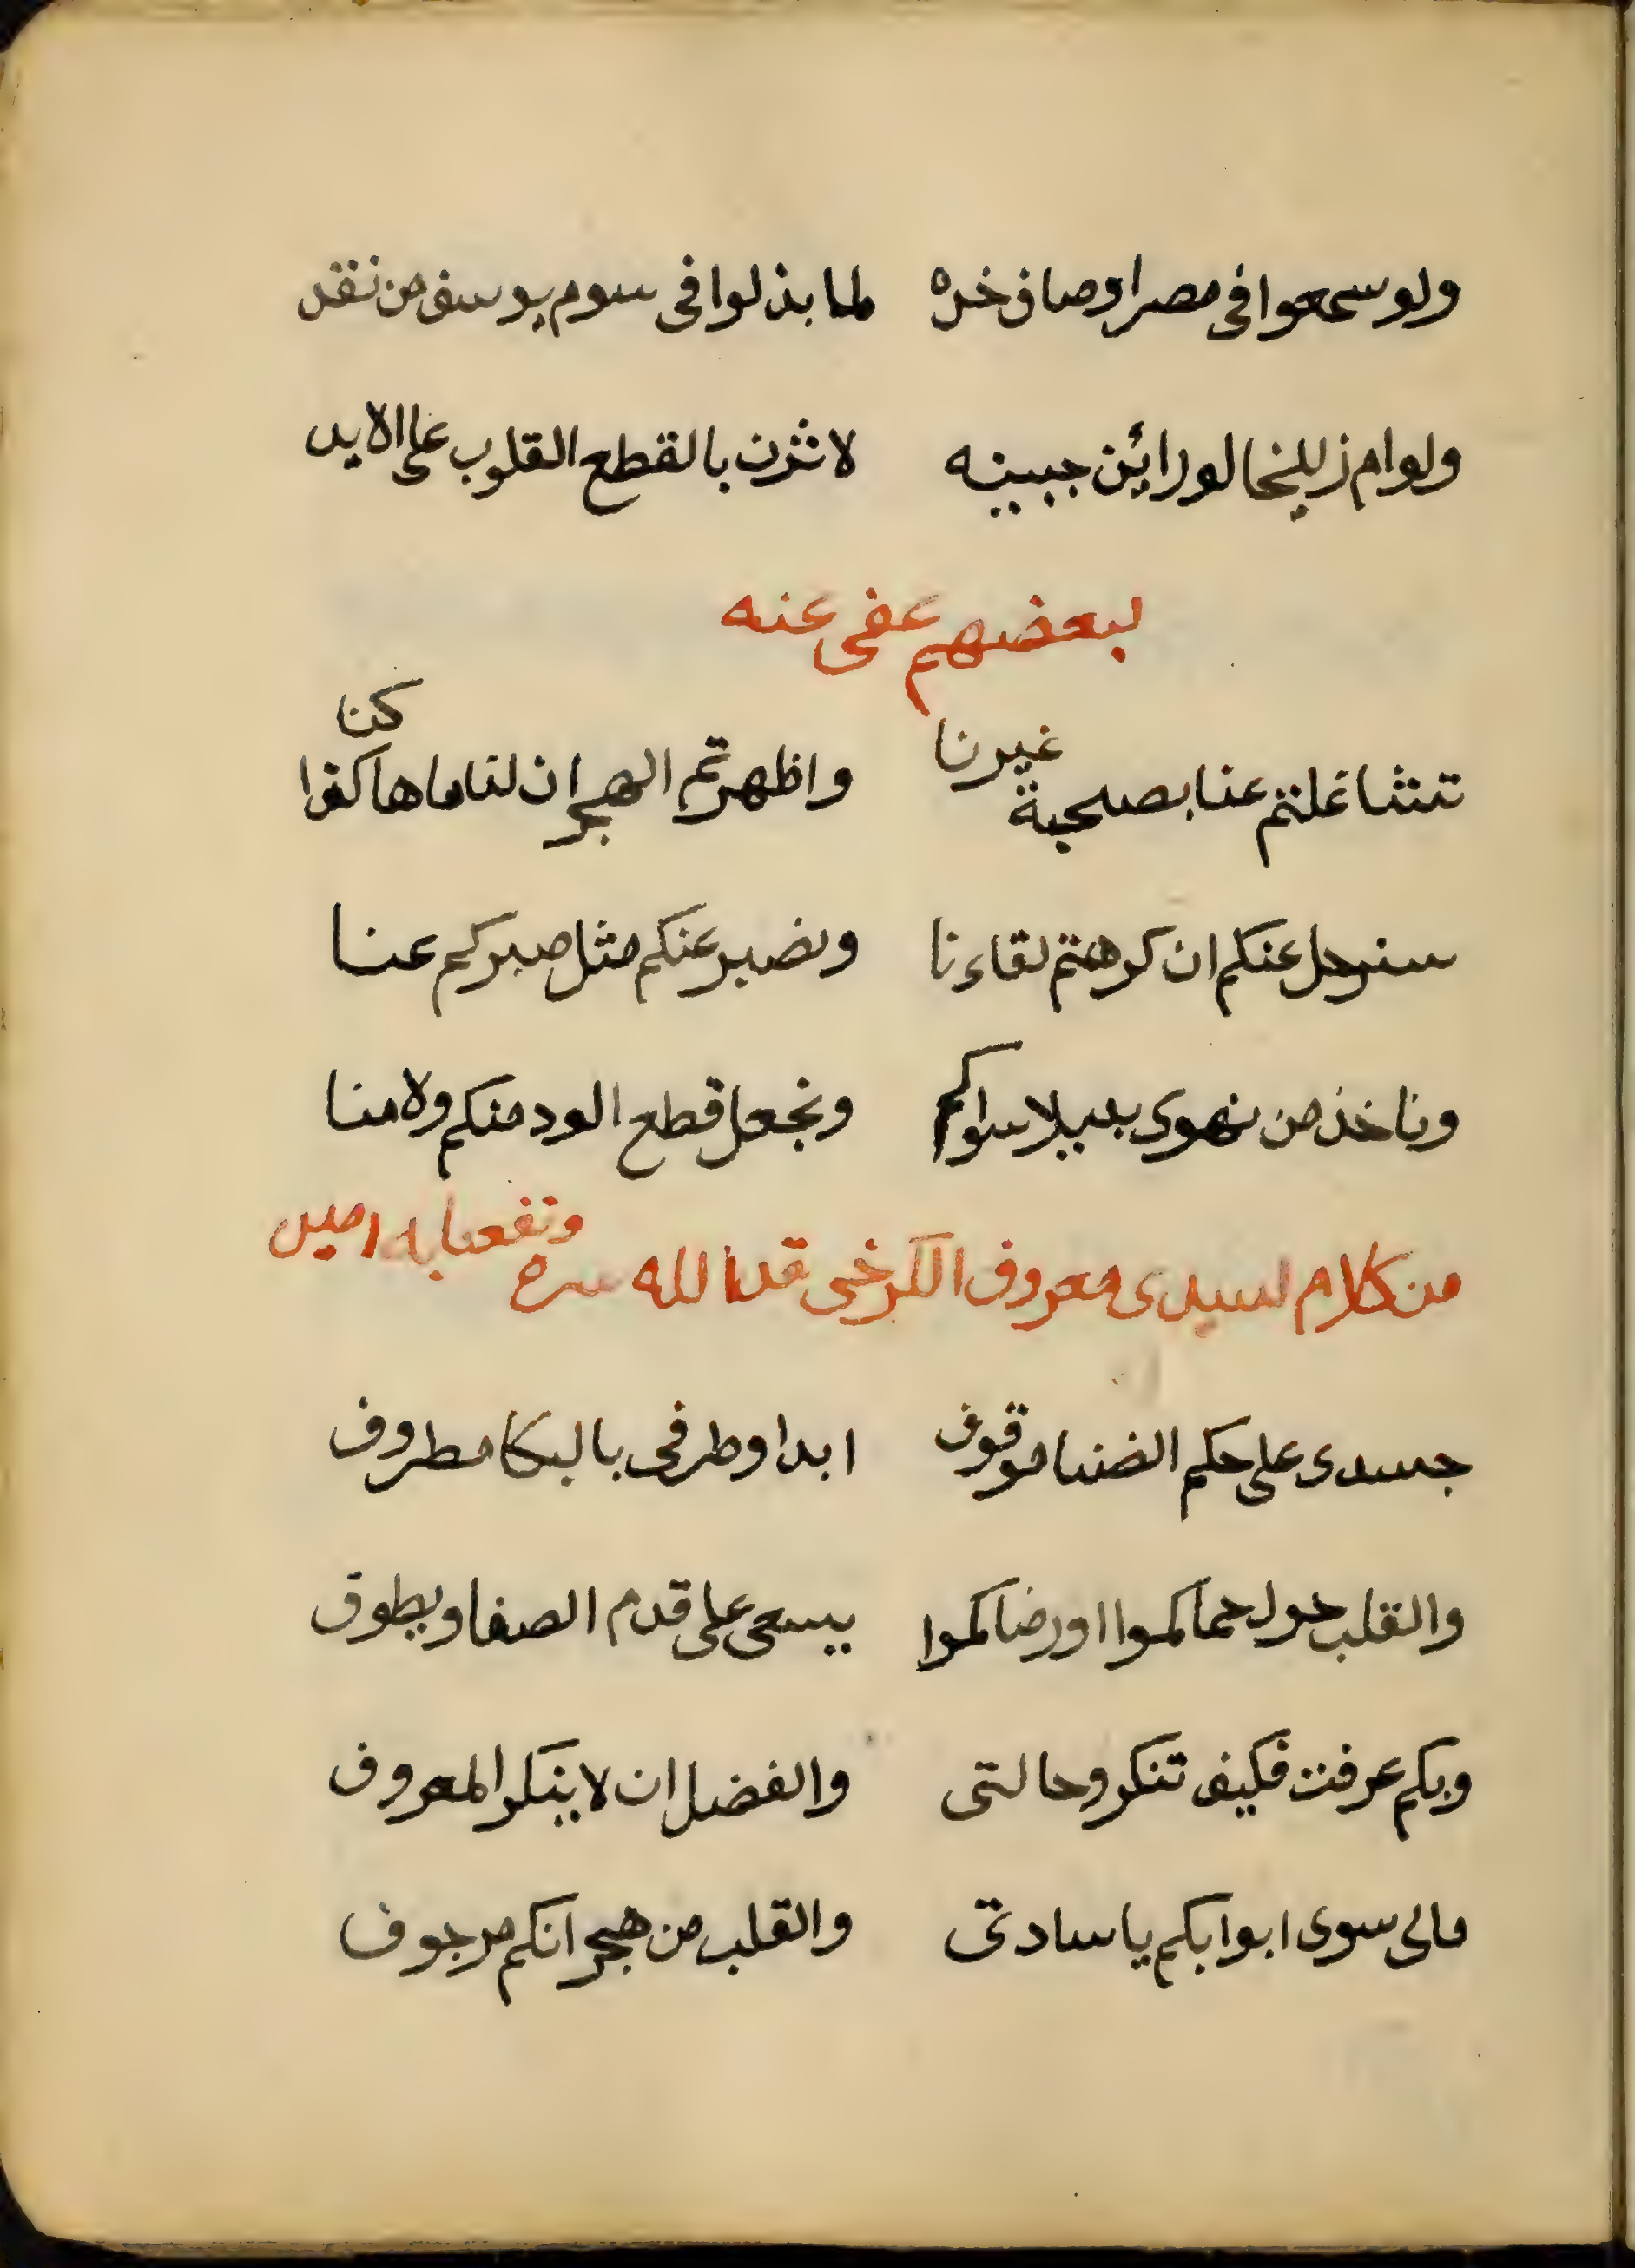 ولو سمعوا في مصر اوصاف خده لما بذلوا في سوم يوسف من نقد
ولوام زليخا لو رائين جبينه لاثرن بالقطع القلوب على الايد
لبعضهم عفى عنه
تشاغلتم عنا بصحبة غيرنا واظهرتم الهجران لنا ما هاكذا كنا
سنرحل عنكم ان كرهتم لقاءنا ونصبر عنكم مثل صبركم عنا
وناخذ من نهوى بديلا سواكم ونجعل قطع الود منكم ولا منا
من كلام لسيدى معروف الكرخى قدس الله سره ونفعنا به امين
جسدى على حكم الضنا موقوف ابدا وطرفى بالبكا مطروف
والقلب حول حماكموا اورضاكموا يسعى على قدم الصفا ويطوف
وبكم عرفت فكيف تنكر وحالتى والفضل ان لا ينكر المعروف
مالى سوى ابوابكم يا سادتى والقلب من هجرانكم مرجوف